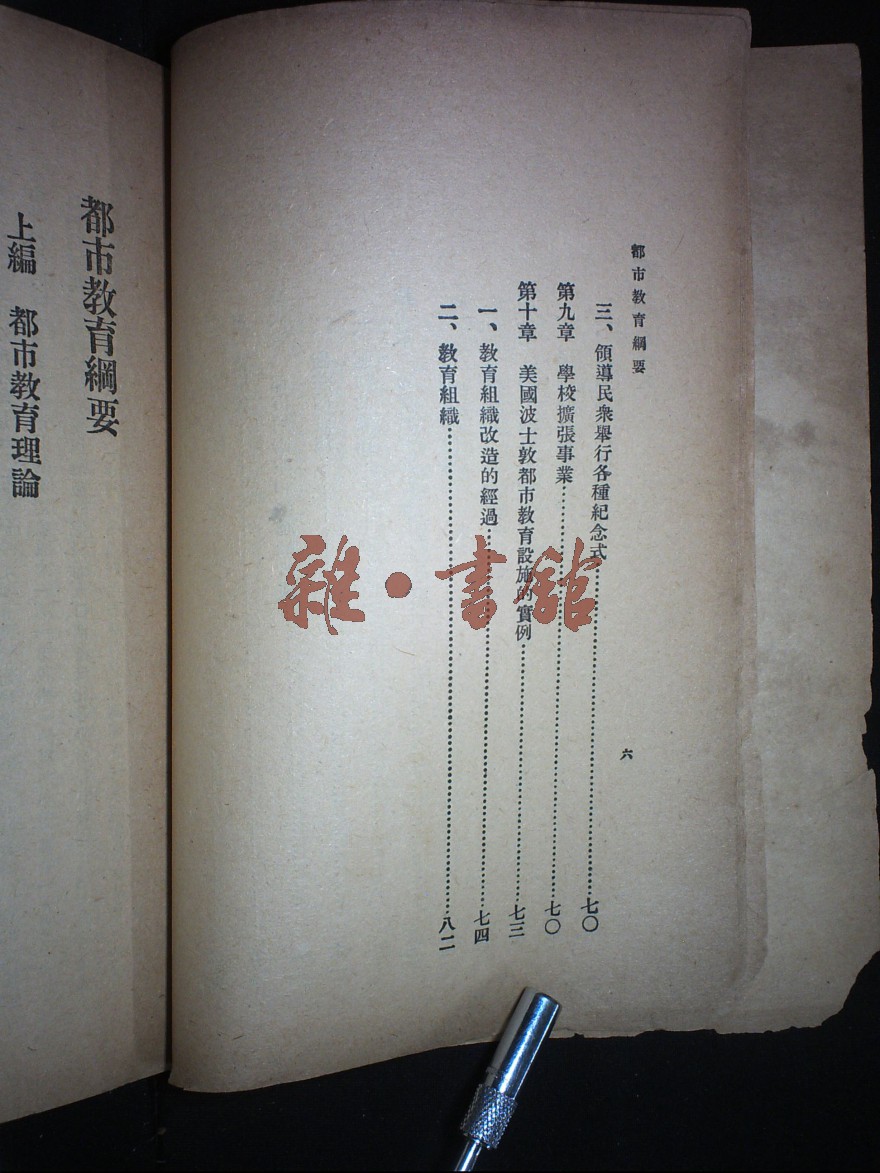 都市教育綱要
六
三、領導民衆舉行各種紀念式……七〇
第九章　學校擴張事業……七〇
第十章　美國波士敦都市教育設施的實例……七三
一、教育組織改造的經過……七四
二、教育組織……八二
都市教育綱要
上編　都市教育理論
雜·書館